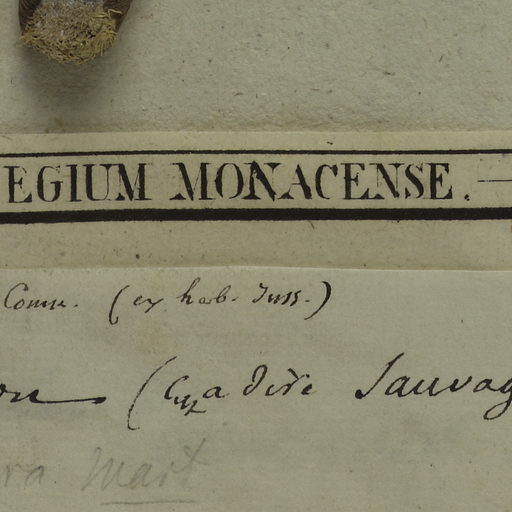 EGIUM MONACENSE.
Comm. (ex herb. Juss.)
ou (Cuzadire Sauvag
ra Mart